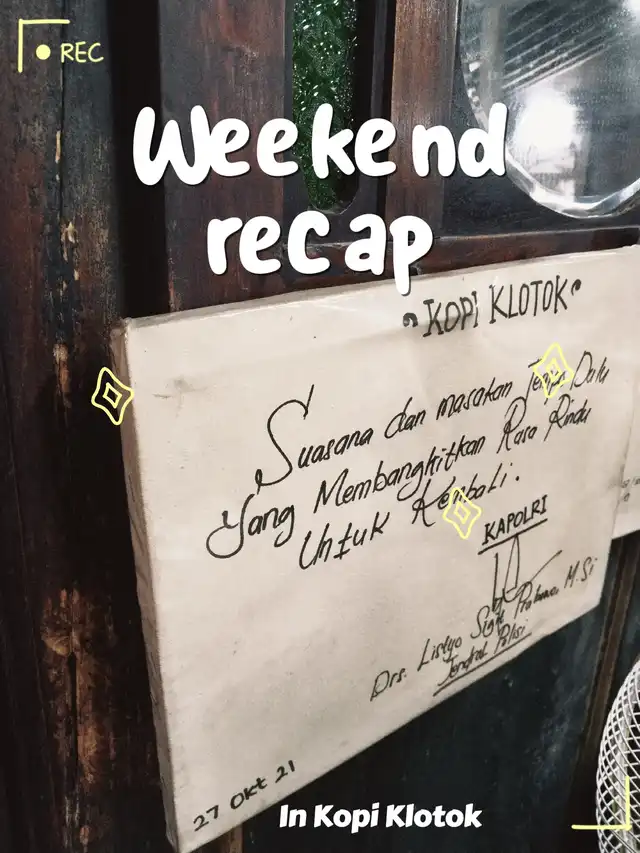 REC
Weekend
recap
"KOPI KLOTOK"
Suasana dan masakan Tempo Dulu
Yang Membangkitkan Rasa Rindu
Untuk Kembali.
KAPOLRI
Drs. Listyo Sigit Prabowo M.Si
Jendral Polisi
27 Okt 21
In Kopi Klotok